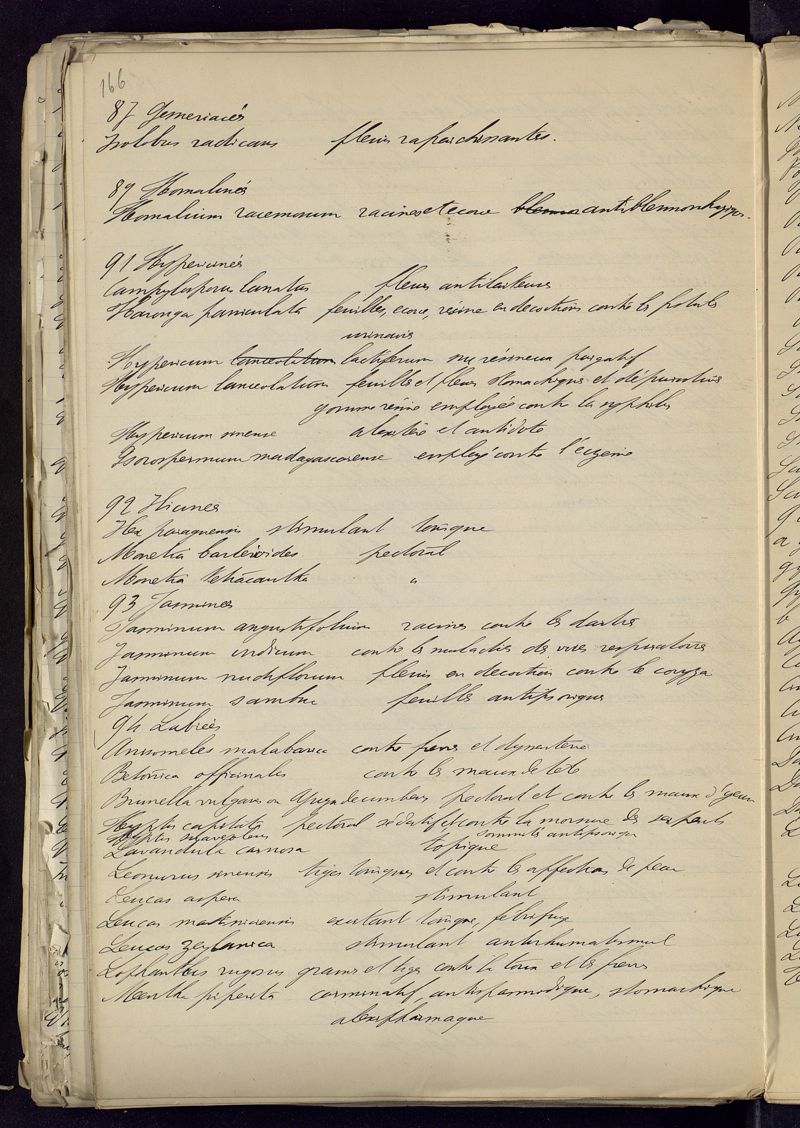 166
87 Gesneriacés
Isolobus radicans fleurs rafraichissantes.
89 Homalinés
Homalium racemosum racines et ecorce blenno antiblennorrhagiques.
91 Hypericinés
Campylosporus lanatus fleurs antilaiteuses
Haronga paniculata feuilles, ecorce, résine en decoctions contre les
urinaires
Hypericum lanceolatum lactiferum suc résineux purgatif
Hypericum lanceolatum feuilles et fleurs stomachiques et dépuratives
gomme résine employés contre la syphilis
Hypericum sinense alexitère et antidote
Psorospermum madagascariense employé contre l'eczema
92 Ilicinés
Ilex paraguensis stimulant tonique
Monetia barlerioides pectoral
Monetia tetracantha "
93 Jasminés
Jasminum angustifolium racines contre les dartres
Jasminum indicum contre les maladies des voies respiratoires
Jasminum nudiflorum fleurs en decoction contre le coryza
Jasminum sambac feuilles antipsoriques
94 Labiées
Anisomeles malabarica contre fievres et dysenterie
Betonica officinales contre les maux de tête
Brunella vulgaris ou decumbens pectoral et contre les maux d'yeux
Hyptis capitata pectoral sédatif et contre la morsure des serpents
Hyptis suaveolens sommités antipsorique
Lavandula carnosa topique
Leonurus sinensis tiges toniques et contre les affections de peau
Leucas aspera stimulant
Leucas martinicensis excitant tonique, febrifuge
Leucas zeylanica stimulant antirhumatismal
Lophanthus rugosus graines et tiges contre la toux et les fievres
Mentha piperita carminatif, antispasmodique, stomachique
alexipharmaque